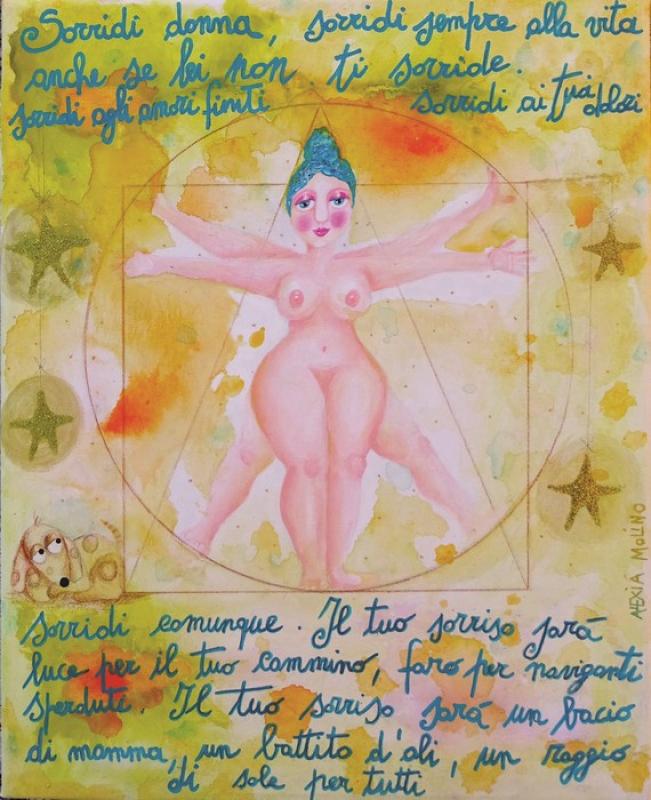 Sorridi donna, sorridi sempre alla vita
anche se lei non ti sorride.
sorridi agli amori finiti sorridi ai tuoi dolori
ALEXIA MOLINO
sorridi comunque. Il tuo sorriso sarà
luce per il tuo cammino, faro per naviganti
sperduti. Il tuo sorriso sarà un bacio
di mamma, un battito d'ali, un raggio
di sole per tutti